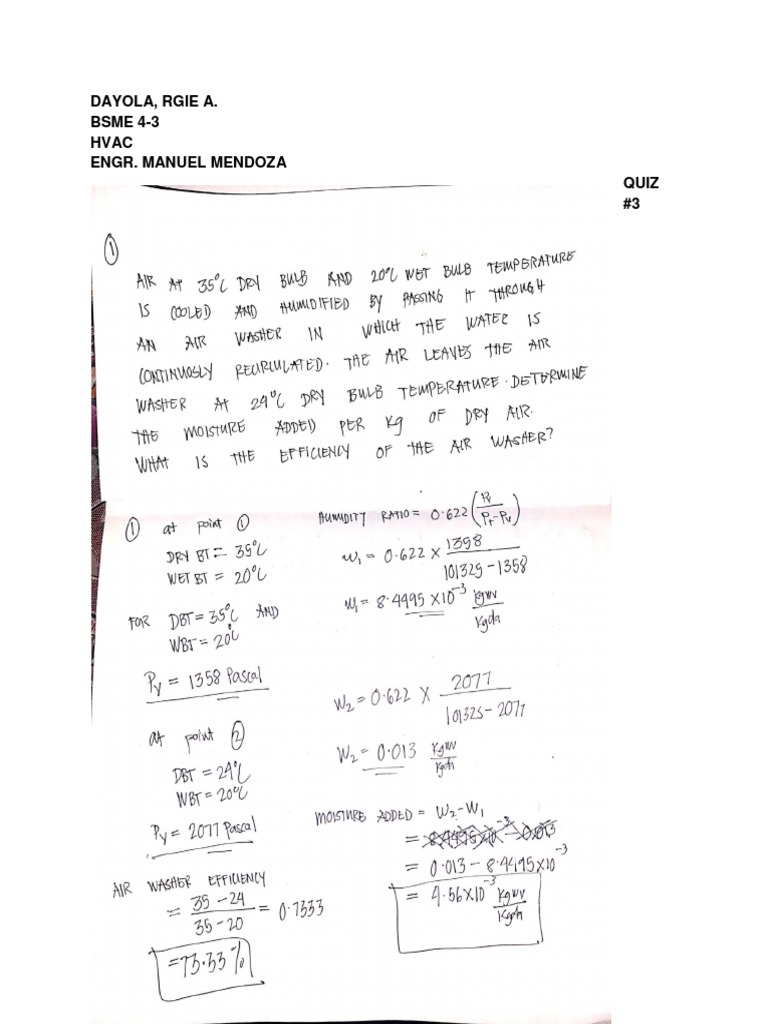 DAYOLA, RGIE A.
BSME 4-3
HVAC
ENGR. MANUEL MENDOZA
QUIZ
#3
①
AIR AT 35°C DRY BULB AND 20°C WET BULB TEMPERATURE
IS COOLED AND HUMIDIFIED BY PASSING IT THROUGH
AN AIR WASHER IN WHICH THE WATER IS
CONTINUOSLY RECIRCULATED. THE AIR LEAVES THE AIR
WASHER AT 24°C DRY BULB TEMPERATURE. DETERMINE
THE MOISTURE ADDED PER Kg OF DRY AIR.
WHAT IS THE EFFICIENCY OF THE AIR WASHER?
① at point ①
DRY BT = 35°C
WET BT = 20°C
FOR DBT = 35°C AND
WBT = 20°C
Pv = 1358 Pascal
at point ②
DBT = 24°C
WBT = 20°C
Pv = 2077 Pascal
AIR WASHER EFFICIENCY
= 35 - 24 / 35 - 20 = 0.7333
= 73.33 %
HUMIDITY RATIO = 0.622 (Pv / Pt - Pv)
W1 = 0.622 × 1358 / 101325 - 1358
W1 = 8.4495 × 10^-3 kgwv / kgda
W2 = 0.622 × 2077 / 101325 - 2077
W2 = 0.013 kgwv / kgda
MOISTURE ADDED = W2 - W1
= 8.4495×10^-3 - 0.013
= 0.013 - 8.4495×10^-3
= 4.56×10^-3 kgwv / kgda